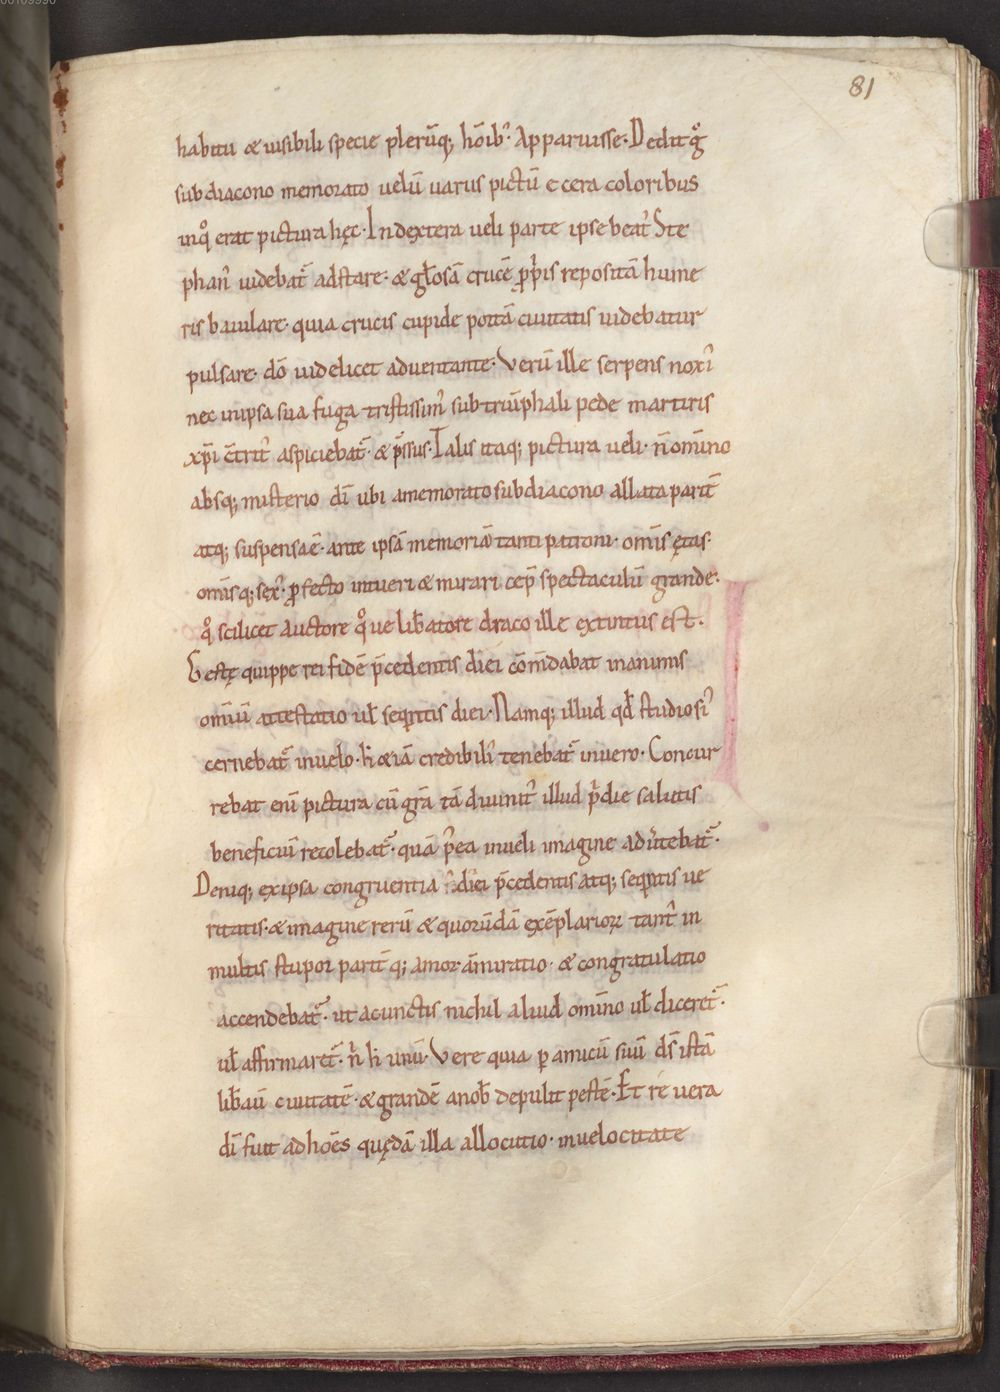 00109990
81
habitu & uisibili specie plerūq; hōib᷒· Apparuisse· Dedit gͦ
subdiacono memorato uelū uariis pictū e cera coloribus
inqͦ erat pictura hęc· In dextera ueli parte ipse beat᷒ Ste
phan᷒ uidebat᷑ adstare· & gl̄osā crucē ꝓpͥis repositā hume
ris baiulare· quia crucis cupide portā ciuitatis uidebatur
pulsare· dō uidelicet aduentante· Verū ille serpens noxi᷒
nec in ipsa sua fuga tristissim᷒ sub triūphali pede martiris
xp̄i c̄trit᷒ aspiciebat᷑ & p̄ssus· Talis itaq; pictura ueli· n̄ omīno
absq; misterio dī ubi amemorato subdiacono allata parit᷑
atq; suspensa ē· ante ipsā memoriā tanti patroni· omīs ętas·
omīsq; sex᷒· ꝓfecto intueri & mirari cep̄ spectaculū grande·
qͦ scilicet auctore qͦue lib̄atore draco ille extintus est.
Gestę quippe rei fidē p̄cedentis diei cōmdabat inanimis
omiū attestatio ul̄ seqͣntis diei· Namq; illud qd̄ studiosi᷒
cernebat᷑ inuelo· h & iā credibili᷒ tenebat᷑ inuero· Concur
rebat enī pictura cū gr̄a tā diuinit᷒ illud pͥdie salutis
beneficiū recolebat᷑· quā p̄ea inueli imagine aduͥtebat᷑·
Deniq; ex ipsa congruentia diei p̄cedentis atq; seqͣntis ue
ritatis· & imagine rerū & quorūdā exēplarioꝝ tant᷒ in
multis stupor parit᷑ q; amor āmiratio· & congratulatio
accendebat᷑· ut acunctis nichil aliud omīno ul̄ diceret᷑·
ul̄ affirmaret᷑· n̄ h unū· Vere quia ꝑ amicū suū ds̄ istā
lib̄auī ciuitatē· & grandē anob̄ depulit pestē· Et re uera
dī fuit ad hōes quędā illa allocutio· inuelocitate